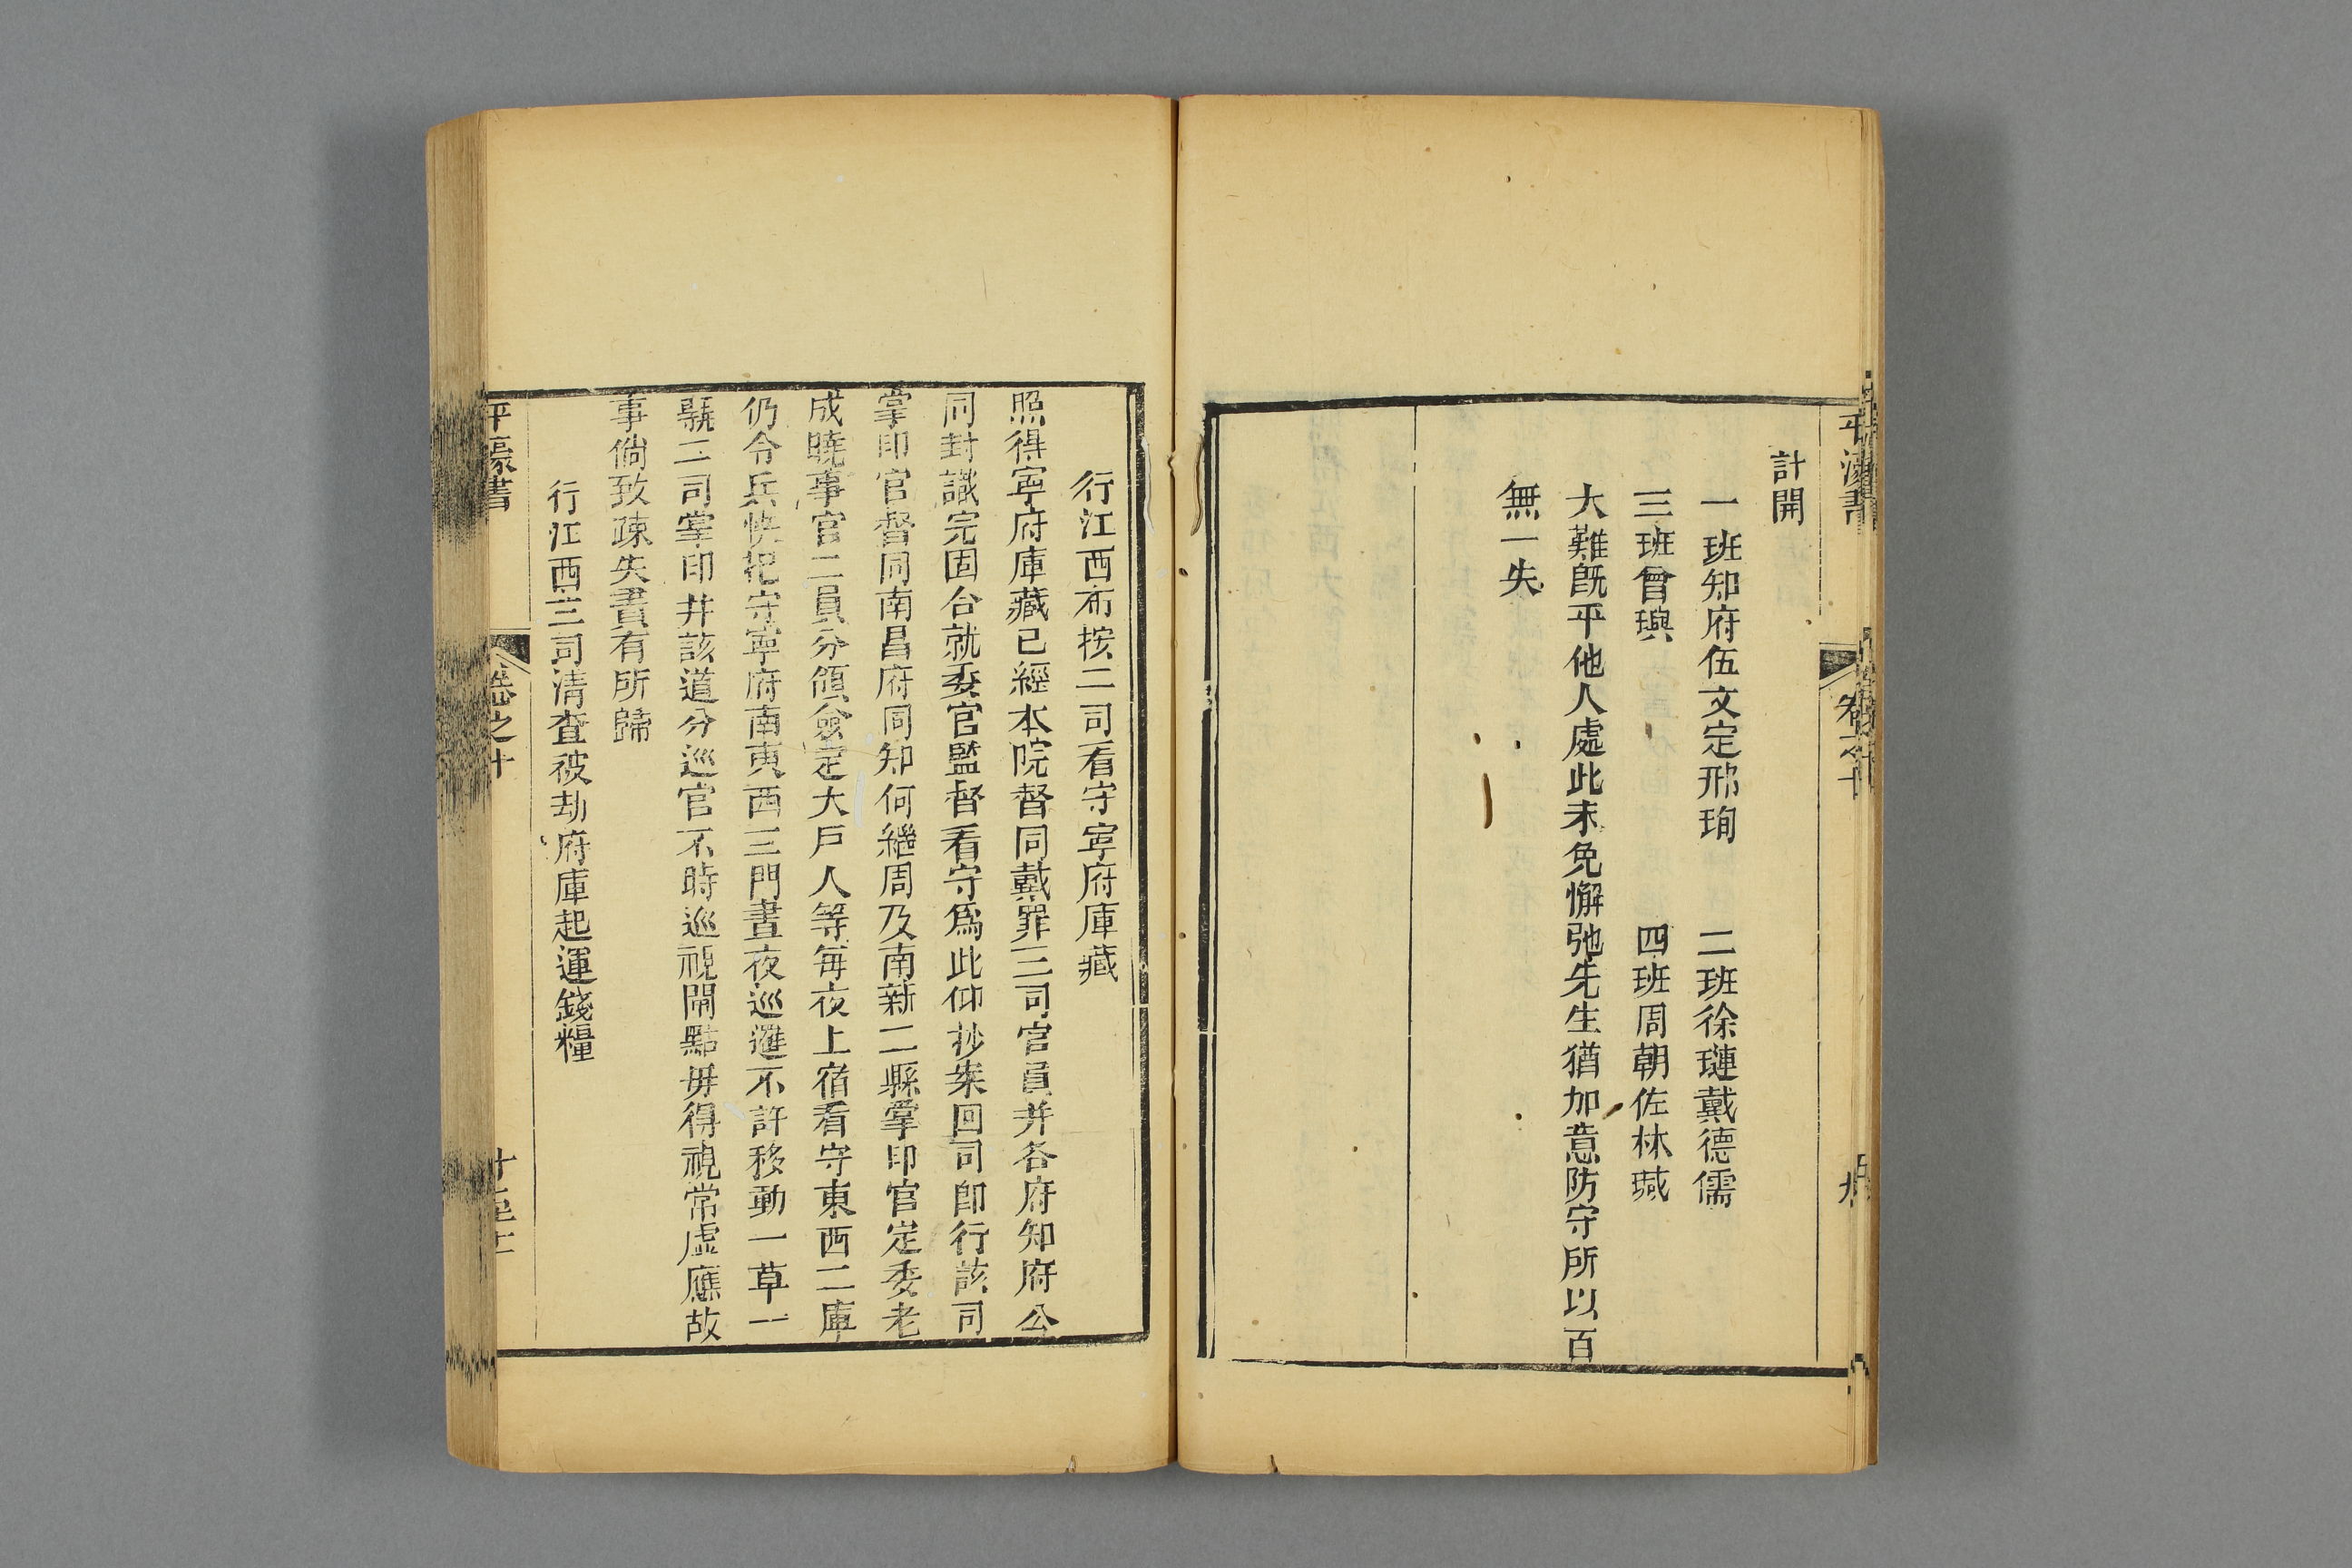 計開
一班知府伍文定邢珣　二班徐璉戴德儒
三班曾璵　四班周朝佐林瑊
大難旣平他人處此未免懈弛先生猶加意防守所以百
無一失
行江西布按二司看守寧府庫藏
照得寧府庫藏已經本院督同戴罪三司官員并各府知府公
同封識完固合就委官監督看守爲此仰抄案回司卽行該司
掌印官督同南昌府同知何繼周及南新二縣掌印官定委老
成曉事官二員分領僉定大戶人等每夜上宿看守東西二庫
仍令兵快把守寧府南東西三門晝夜巡邏不許移動一草一
縣二司掌印并該道分巡官不時巡視開點毋得視常虛應故
事倘致疎失責有所歸
行江西三司清查被劫府庫起運錢糧
平濠書
卷之十